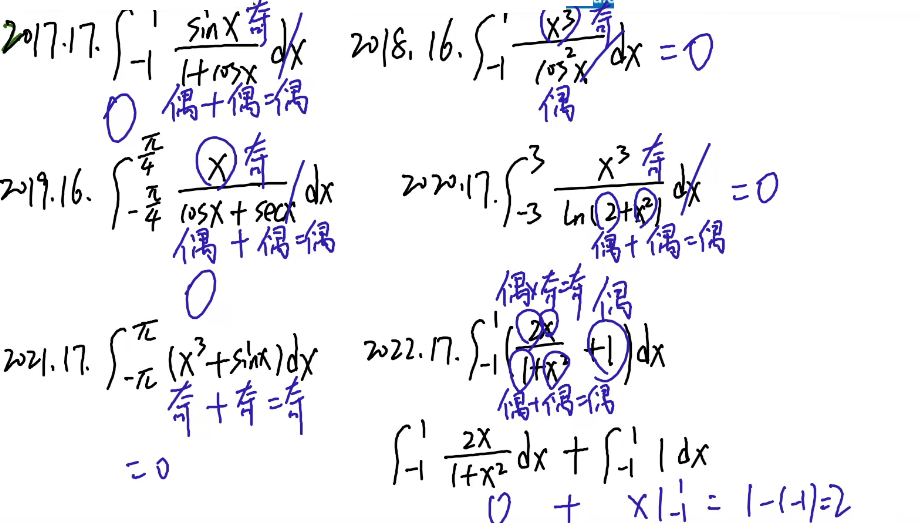 2017.17. ∫_{-1}^{1} sinx/(1+cosx) dx 奇
偶+偶=偶
0
2018.16. ∫_{-1}^{1} x³/cos²x dx = 0 奇
偶
2019.16. ∫_{-π/4}^{π/4} x/(cosx+secx) dx 奇
偶+偶=偶
0
2020.17. ∫_{-3}^{3} x³/ln(2+x²) dx = 0 奇
偶+偶=偶
2021.17. ∫_{-π}^{π} (x³+sinx)dx
奇+奇=奇
=0
偶×奇=奇 偶
2022.17. ∫_{-1}^{1} (2x/(1+x²) +1)dx
偶+偶=偶
∫_{-1}^{1} 2x/(1+x²) dx + ∫_{-1}^{1} 1dx
0 + x|_{-1}^{1} = 1-(-1)=2